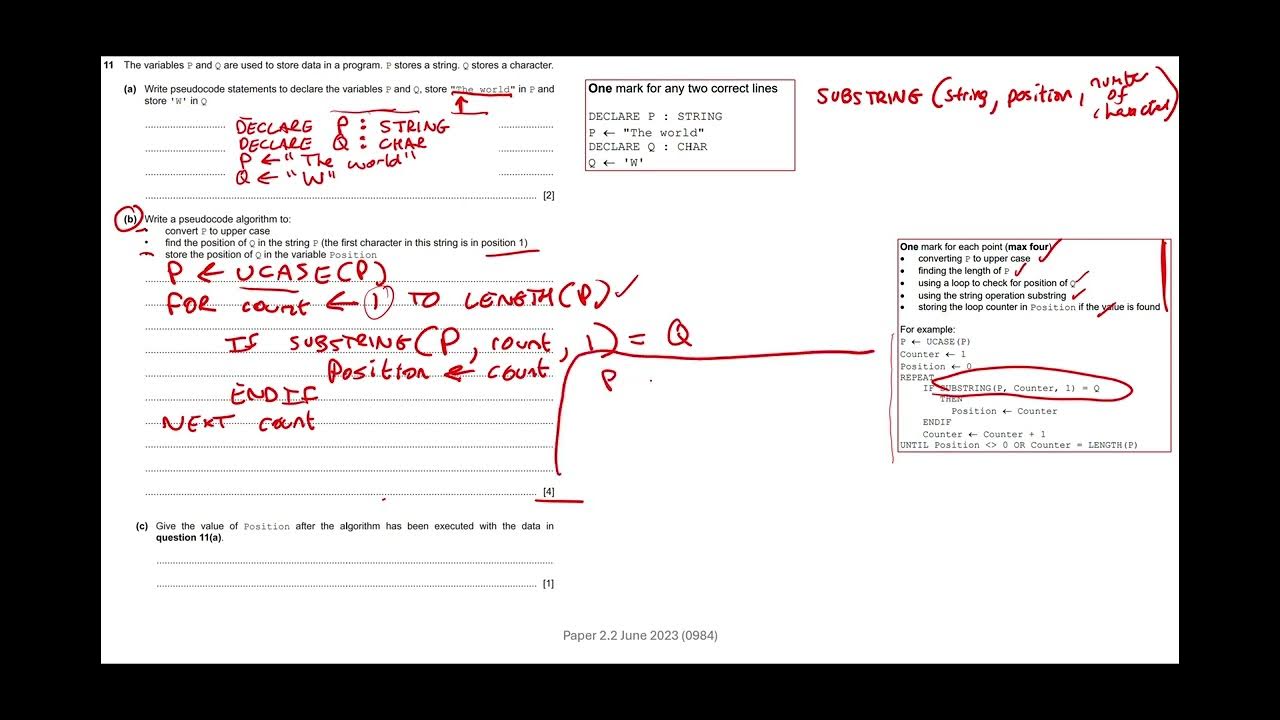 11 The variables P and Q are used to store data in a program. P stores a string. Q stores a character.
(a) Write pseudocode statements to declare the variables P and Q, store "The world" in P and
store 'W' in Q
DECLARE P : STRING
DECLARE Q : CHAR
P ← "The world"
Q ← "W"
[2]
(b) Write a pseudocode algorithm to:
• convert P to upper case
• find the position of Q in the string P (the first character in this string is in position 1)
• store the position of Q in the variable Position
P ← UCASE(P)
FOR count ← 1 TO LENGTH(P)
IF SUBSTRING(P, count, 1) = Q
Position ← count
ENDIF
NEXT count
P
[4]
(c) Give the value of Position after the algorithm has been executed with the data in
question 11(a).
[1]
One mark for any two correct lines
DECLARE P : STRING
P ← "The world"
DECLARE Q : CHAR
Q ← 'W'
SUBSTRING (string, position, number
of
character)
One mark for each point (max four)
• converting P to upper case
• finding the length of P
• using a loop to check for position of Q
• using the string operation substring
• storing the loop counter in Position if the value is found
For example:
P ← UCASE(P)
Counter ← 1
Position ← 0
REPEAT
IF SUBSTRING(P, Counter, 1) = Q
THEN
Position ← Counter
ENDIF
Counter ← Counter + 1
UNTIL Position <> 0 OR Counter = LENGTH(P)
Paper 2.2 June 2023 (0984)